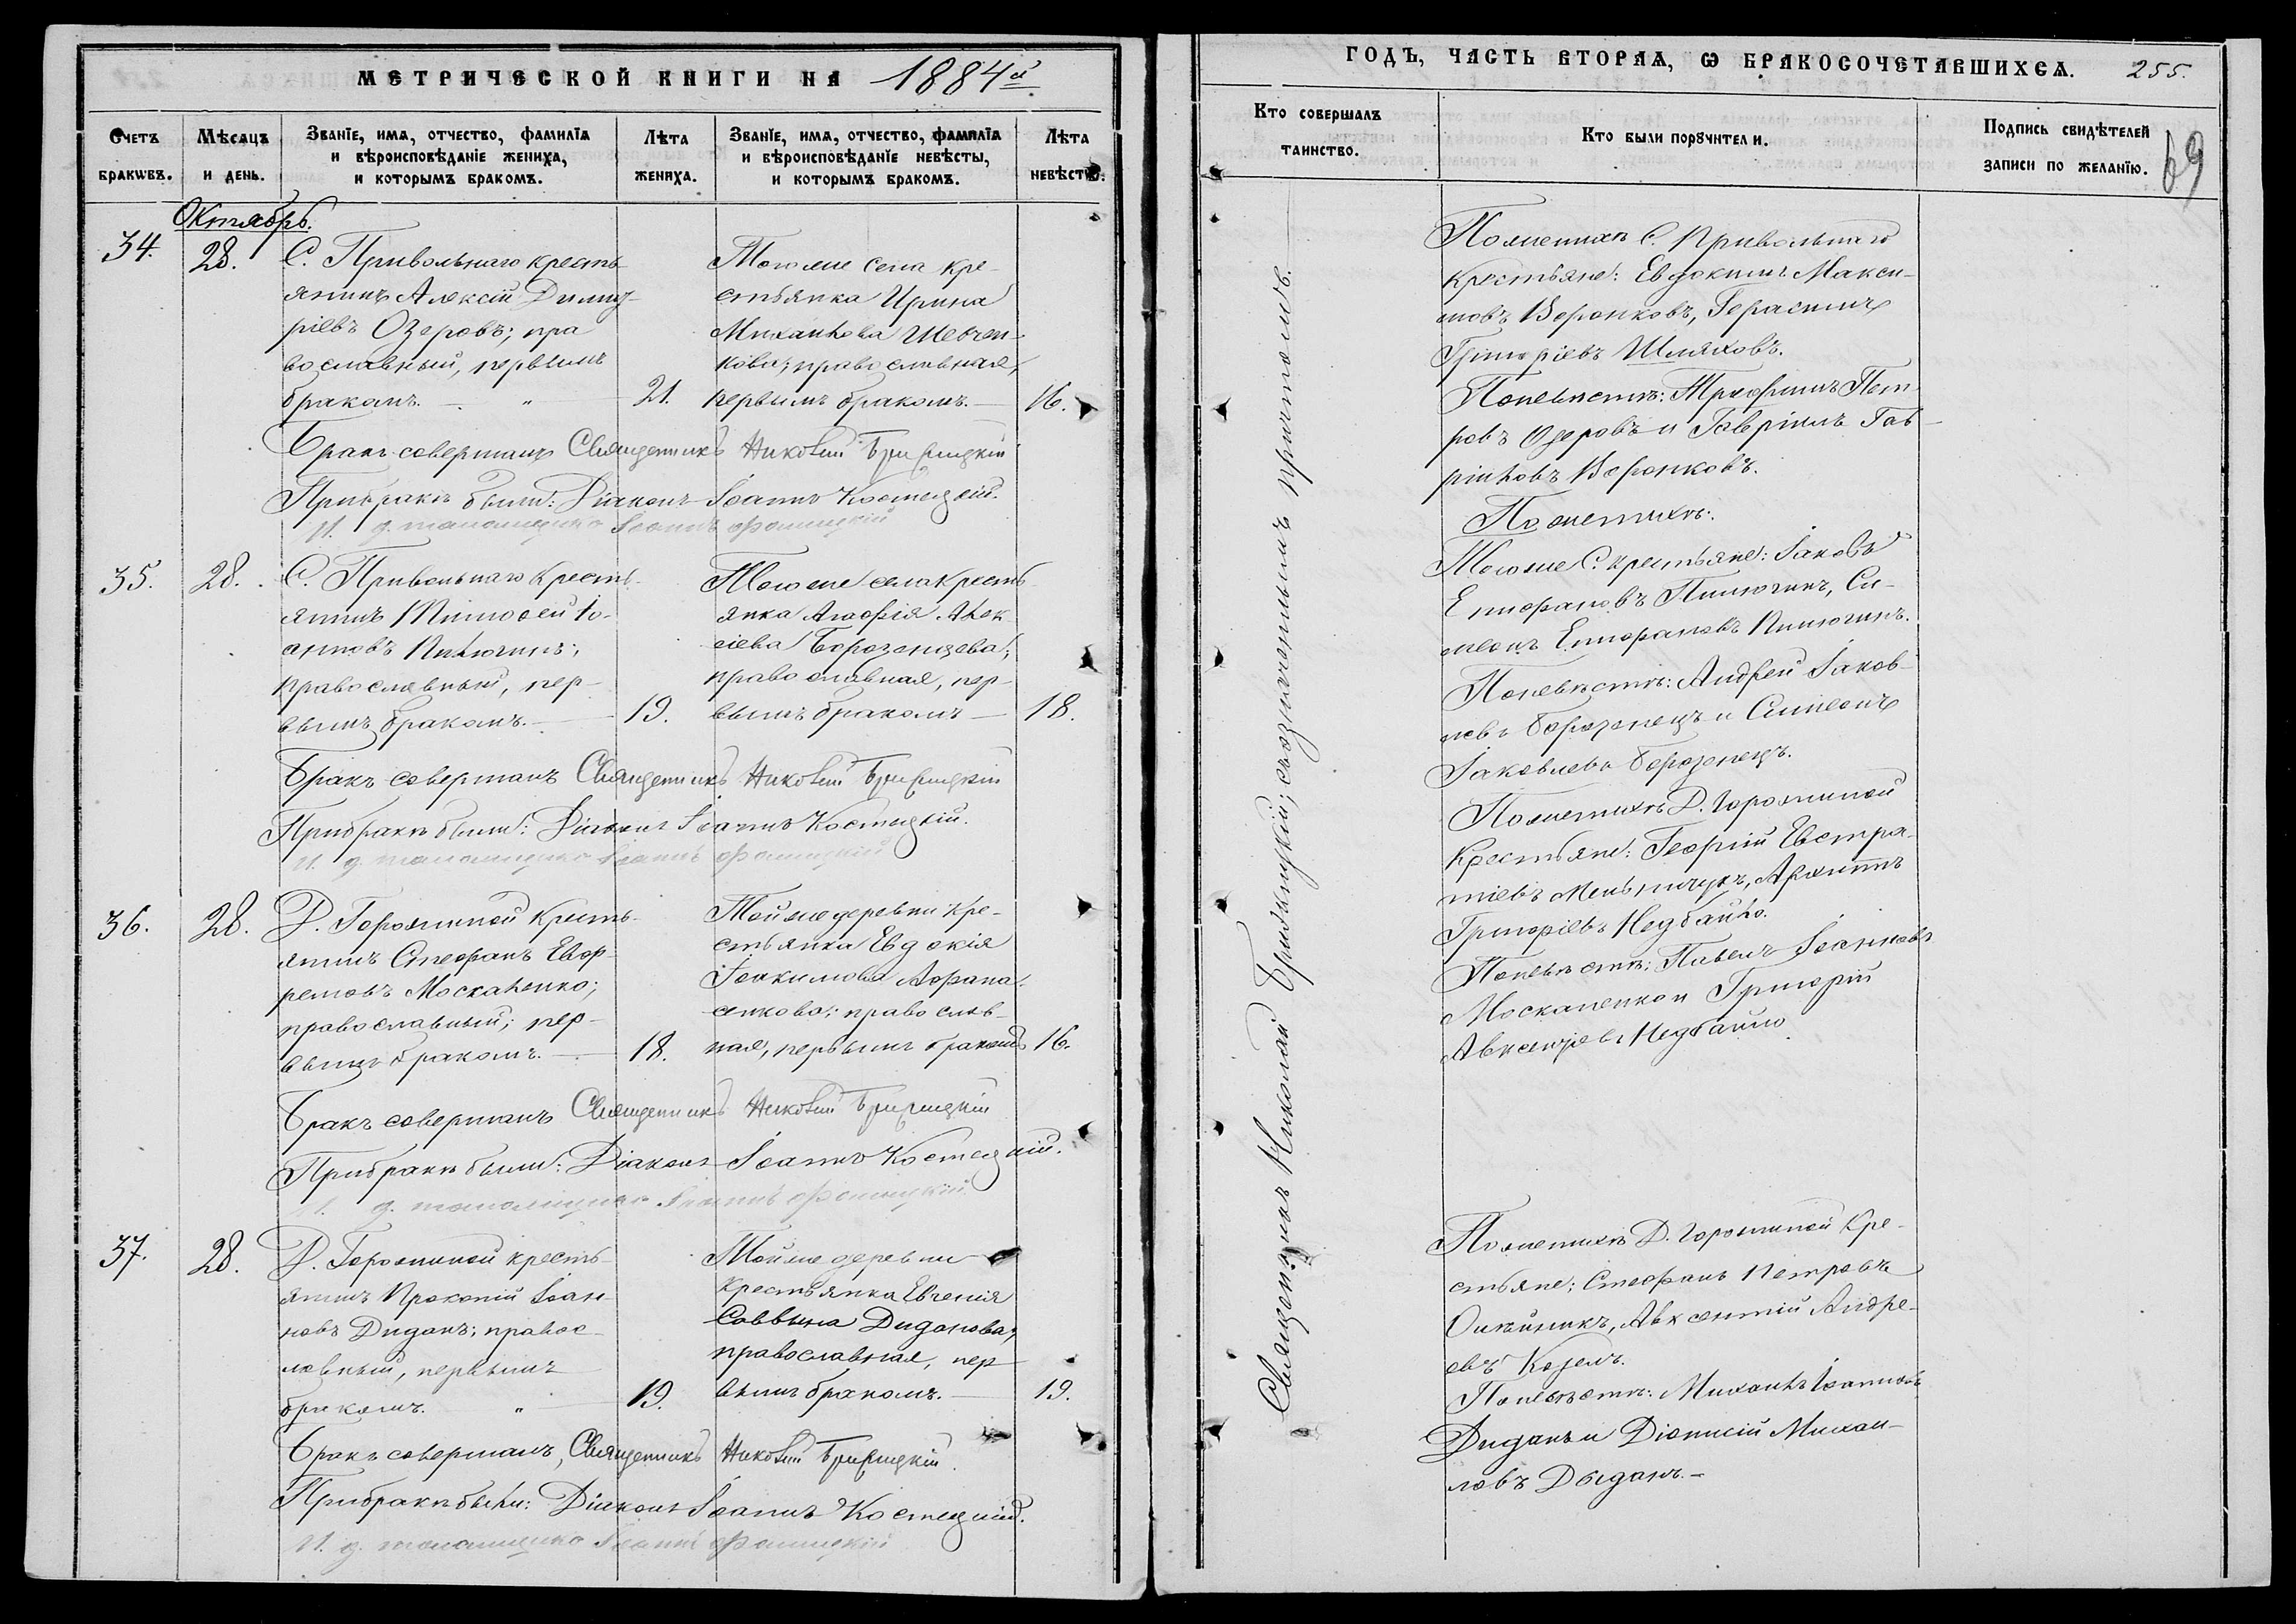 МЕТРИЧЕСКОЙ КНИГИ НА 1884й
Счетъ браквъ.
Мѣсяцъ и день.
Званїе, имя, отчество, фамилїя и вѣроисповѣданїе жениха, и которымъ бракомъ.
Лѣта жениха.
Званїе, имя, отчество, фамилїя и вѣроисповѣданїе невѣсты, и которымъ бракомъ.
Лѣта невѣсты.
Октябрь.
34.
28.
С. Привольнаго кресть-
янинъ Алексій Димит-
ріевъ Озеровъ; пра
вославный, первымъ
бракомъ. — „ — 21.
Тогоже села кре-
стьянка Ирина
Михаилова Шевчен-
кова; православная,
первымъ бракомъ. — 16.
Бракъ совершалъ Священникъ Николай
При бракѣ были: Діаконъ Іоаннъ Костецкій.
И. д. псаломщика Іоаннъ
35.
28.
С. Привольнаго кресть-
янинъ Тимофей Іо-
анновъ Пилюгинъ;
православный, пер-
вымъ бракомъ. — 19.
Тогоже села кресть
янка Агафія Алек
сіева Борозенцева;
православная, пер-
вымъ бракомъ — 18.
Бракъ совершалъ Священникъ Николай
При бракѣ были: Діаконъ Іоаннъ Костецкій.
И. д. псаломщика Іоаннъ
36.
28.
Д. Горожиной кресть-
янинъ Стефанъ Евф-
ремовъ Москаленко;
православный; пер-
вымъ бракомъ. — 18.
Тойже деревни кре-
стьянка Евдокія
Іоакимова Афана-
сенкова; православ-
ная, первымъ бракомъ 16.
Бракъ совершалъ Священникъ Николай
При бракѣ были: Діаконъ Іоаннъ Костецкій.
И. д. псаломщика Іоаннъ
37.
28.
Д. Горожиной кресть-
янинъ Прокопій Іоан-
новъ Диданъ; правос-
лавный, первымъ
бракомъ. „ — 19.
Тойже деревни
крестьянка Евгенія
Саввина Диданова;
православная, пер
вымъ бракомъ. — 19.
Бракъ совершалъ, Священникъ Николай
При бракѣ были: Діаконъ Іоаннъ Костецкій.
И. д. псаломщика Іоаннъ
ГОДЪ, ЧАСТЬ ВТОРАЯ, Ѡ БРАКОСОЧЕТАВШИХСЯ. 255.
69
Кто совершалъ таинство.
Кто были порꙋчители.
Подпись свидѣтелей записи по желанїю.
Священникъ Николай съ означеннымъ причтомъ.
По женихѣ С. Привольнаго
крестьяне: Евдокимъ Макси-
мовъ Воронковъ, Герасимъ
Григоріевъ Шляховъ.
По невѣстѣ: Трифонъ Пет
ровъ Озеровъ и Гавріилъ Гав-
ріиловъ Воронковъ.
По женихѣ:
Тогоже С. крестьяне: Іаковъ
Епифановъ Пилюгинъ, Си-
меонъ Епифановъ Пилюгинъ.
По невѣстѣ: Андрей Іаков-
левъ Борозенецъ и Симеонъ
Іаковлевъ Борозенецъ.
По женихѣ Д. Горожиной
крестьяне: Георгій Евстра-
тіевъ Мельничукъ, Архиппъ
Григоріевъ Недбайло.
По невѣстѣ: Павелъ Іоанновъ
Москаленко и Григорій
Авксентіевъ Недбайло
По женихѣ Д. Горожиной кре-
стьяне; Стефанъ Петровъ
Олѣйникъ, Авксентій Андре-
евъ Козелъ.
По невѣстѣ: Михаилъ Іоанновъ
Диданъ и Діонисій Михаи-
ловъ Дыданъ. —